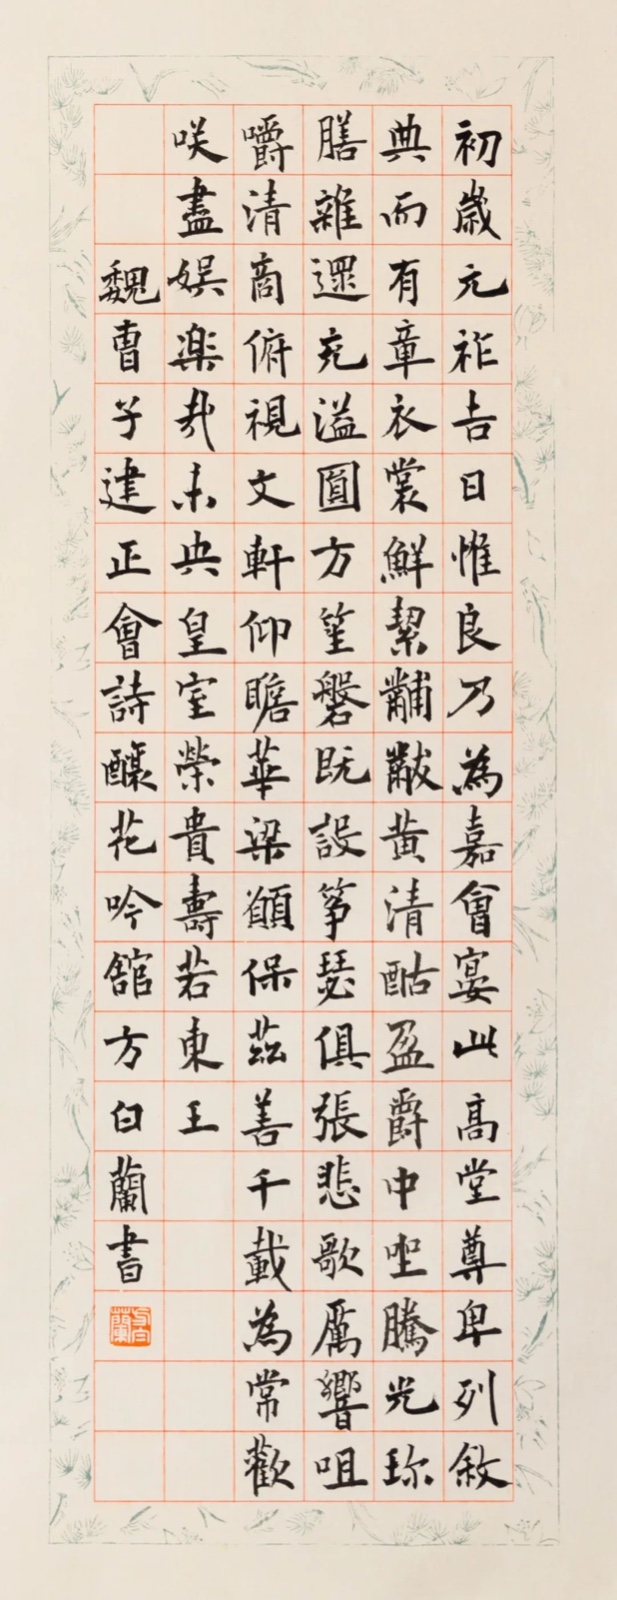 初歲元祚吉日惟良乃為嘉會宴此高堂尊卑列敘
典而有章衣裳鮮絜黼黻黃清酤盈爵中坐騰光珎
膳雜遝充溢圓方笙磬既設箏瑟俱張悲歌厲響咀
嚼清商俯視文軒仰瞻華梁願保茲善千載為常歡
咲盡娛樂哉未央皇室榮貴壽若東王
魏曹子建正會詩釀花吟館方白蘭書
方白蘭